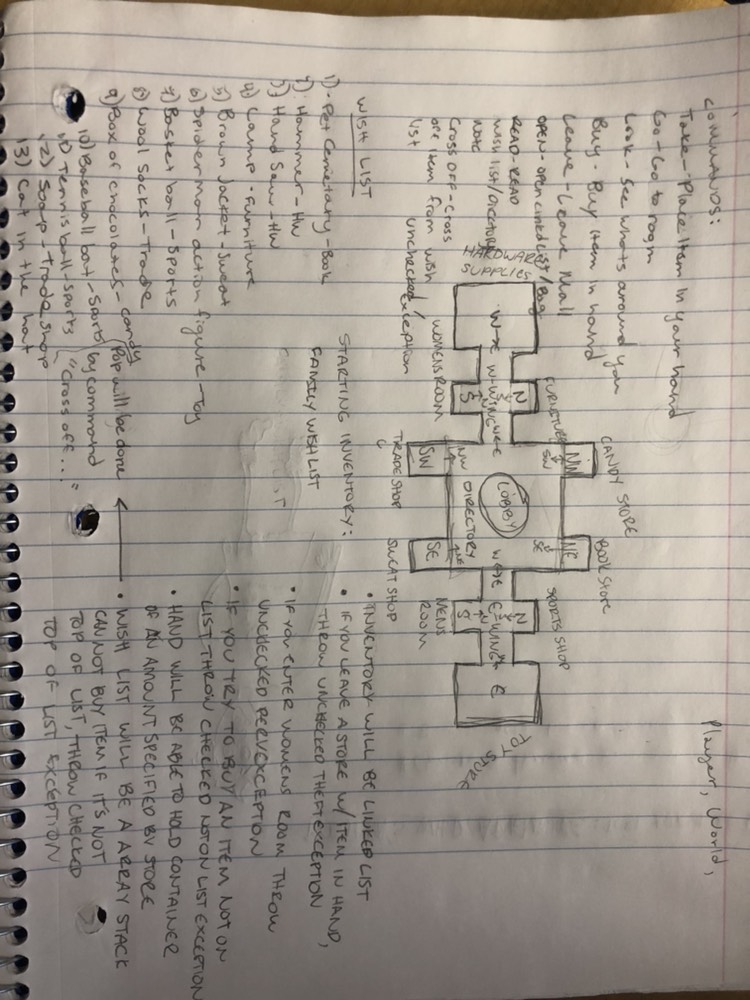 COMMANDS:
Take - Place Item In your hand
Go - Go to room
Look - See whats around you
Buy - Buy item in hand
Leave - Leave Mall
OPEN - open linked list / Bag
READ - READ
wish list/directory
note
Cross off - Cross
off item from wish
list
Player, World,
HARDWARE
SUPPLIES
W-X
W-WING
W-E
N
S
WOMENS ROOM
FURNITURE
SW
NW
CANDY STORE
LOBBY
DIRECTORY
NW
SW
TRADE SHOP
NE
SE
BOOK Store
NE
SE
SWEAT SHOP
W-E
E-WING
N
S
SPORTS SHOP
MENS
ROOM
E
TOY STORE
unchecked
exception
WISH LIST
1) - Pet Cemetary - Book
2) Hammer - HW
3) Hand Saw - HW
4) Lamp - Furniture
5) Brown Jacket - Sweat
6) Spiderman action figure - Toy
7) Basketball - Sports
8) Wool Socks - Trade
9) Box of chocolates - candy
10) Baseball bat - Sports
11) Tennis ball - Sports
12) Soap - Trade shop
13) Cat in the hat
Pop will be done
by command
"Cross off ... "
STARTING INVENTORY:
FAMILY WISHLIST
• INVENTORY WILL BE LINKED LIST
• IF YOU LEAVE A STORE W/ ITEM IN HAND,
THROW UNCHECKED THEFTEXCEPTION
• IF YOU ENTER WOMENS ROOM THROW
UNCHECKED PERVEXCEPTION
• IF YOU TRY TO BUY AN ITEM NOT ON
LIST THROW CHECKED NOTONLIST EXCEPTION
• HAND WILL BE ABLE TO HOLD CONTAINER
OF AN AMOUNT SPECIFIED BY STORE
• WISH LIST WILL BE A ARRAY STACK
CAN NOT BUY ITEM IF IT'S NOT
TOP OF LIST, THROW CHECKED
TOP OF LIST EXCEPTION